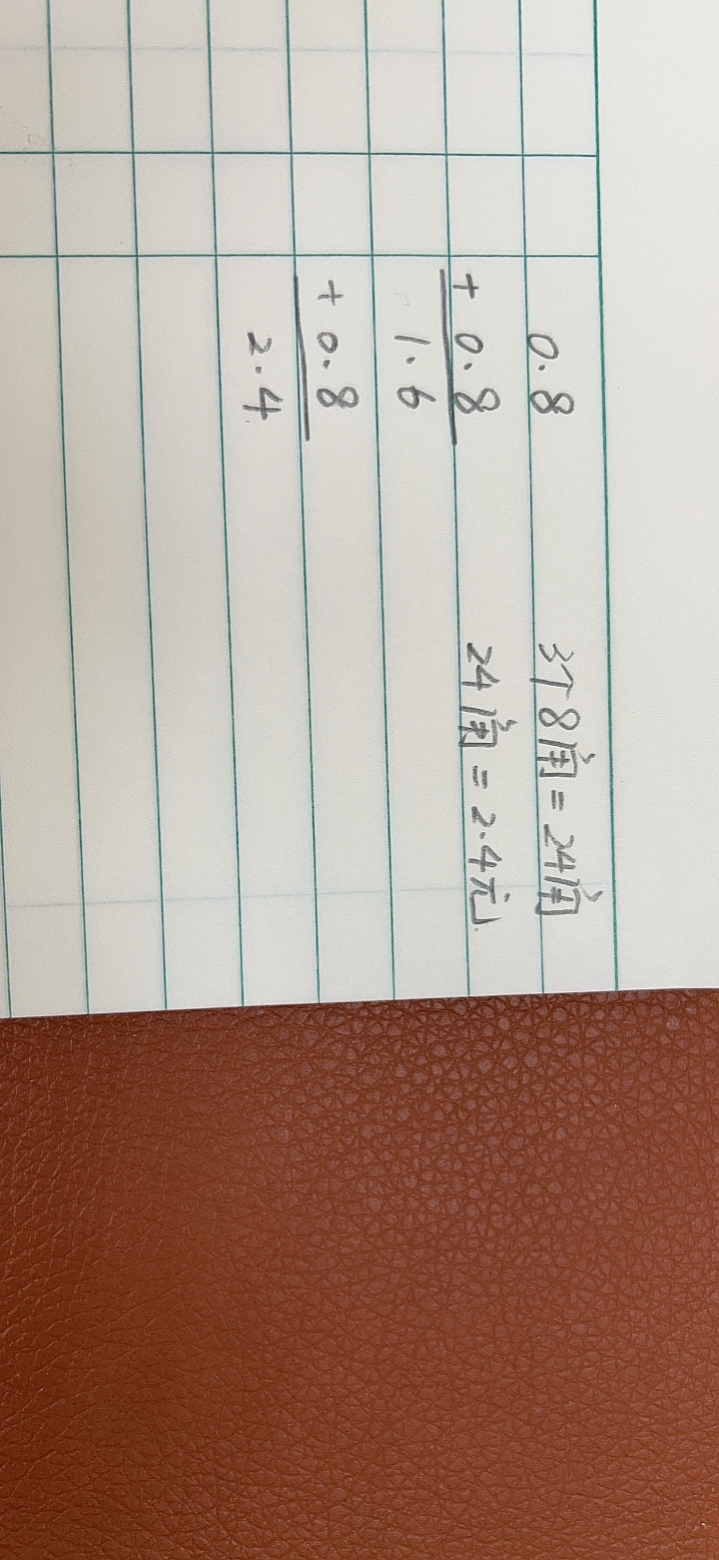 0.8
+ 0.8
1.6
+ 0.8
2.4
3个8角=24角
24角=2.4元